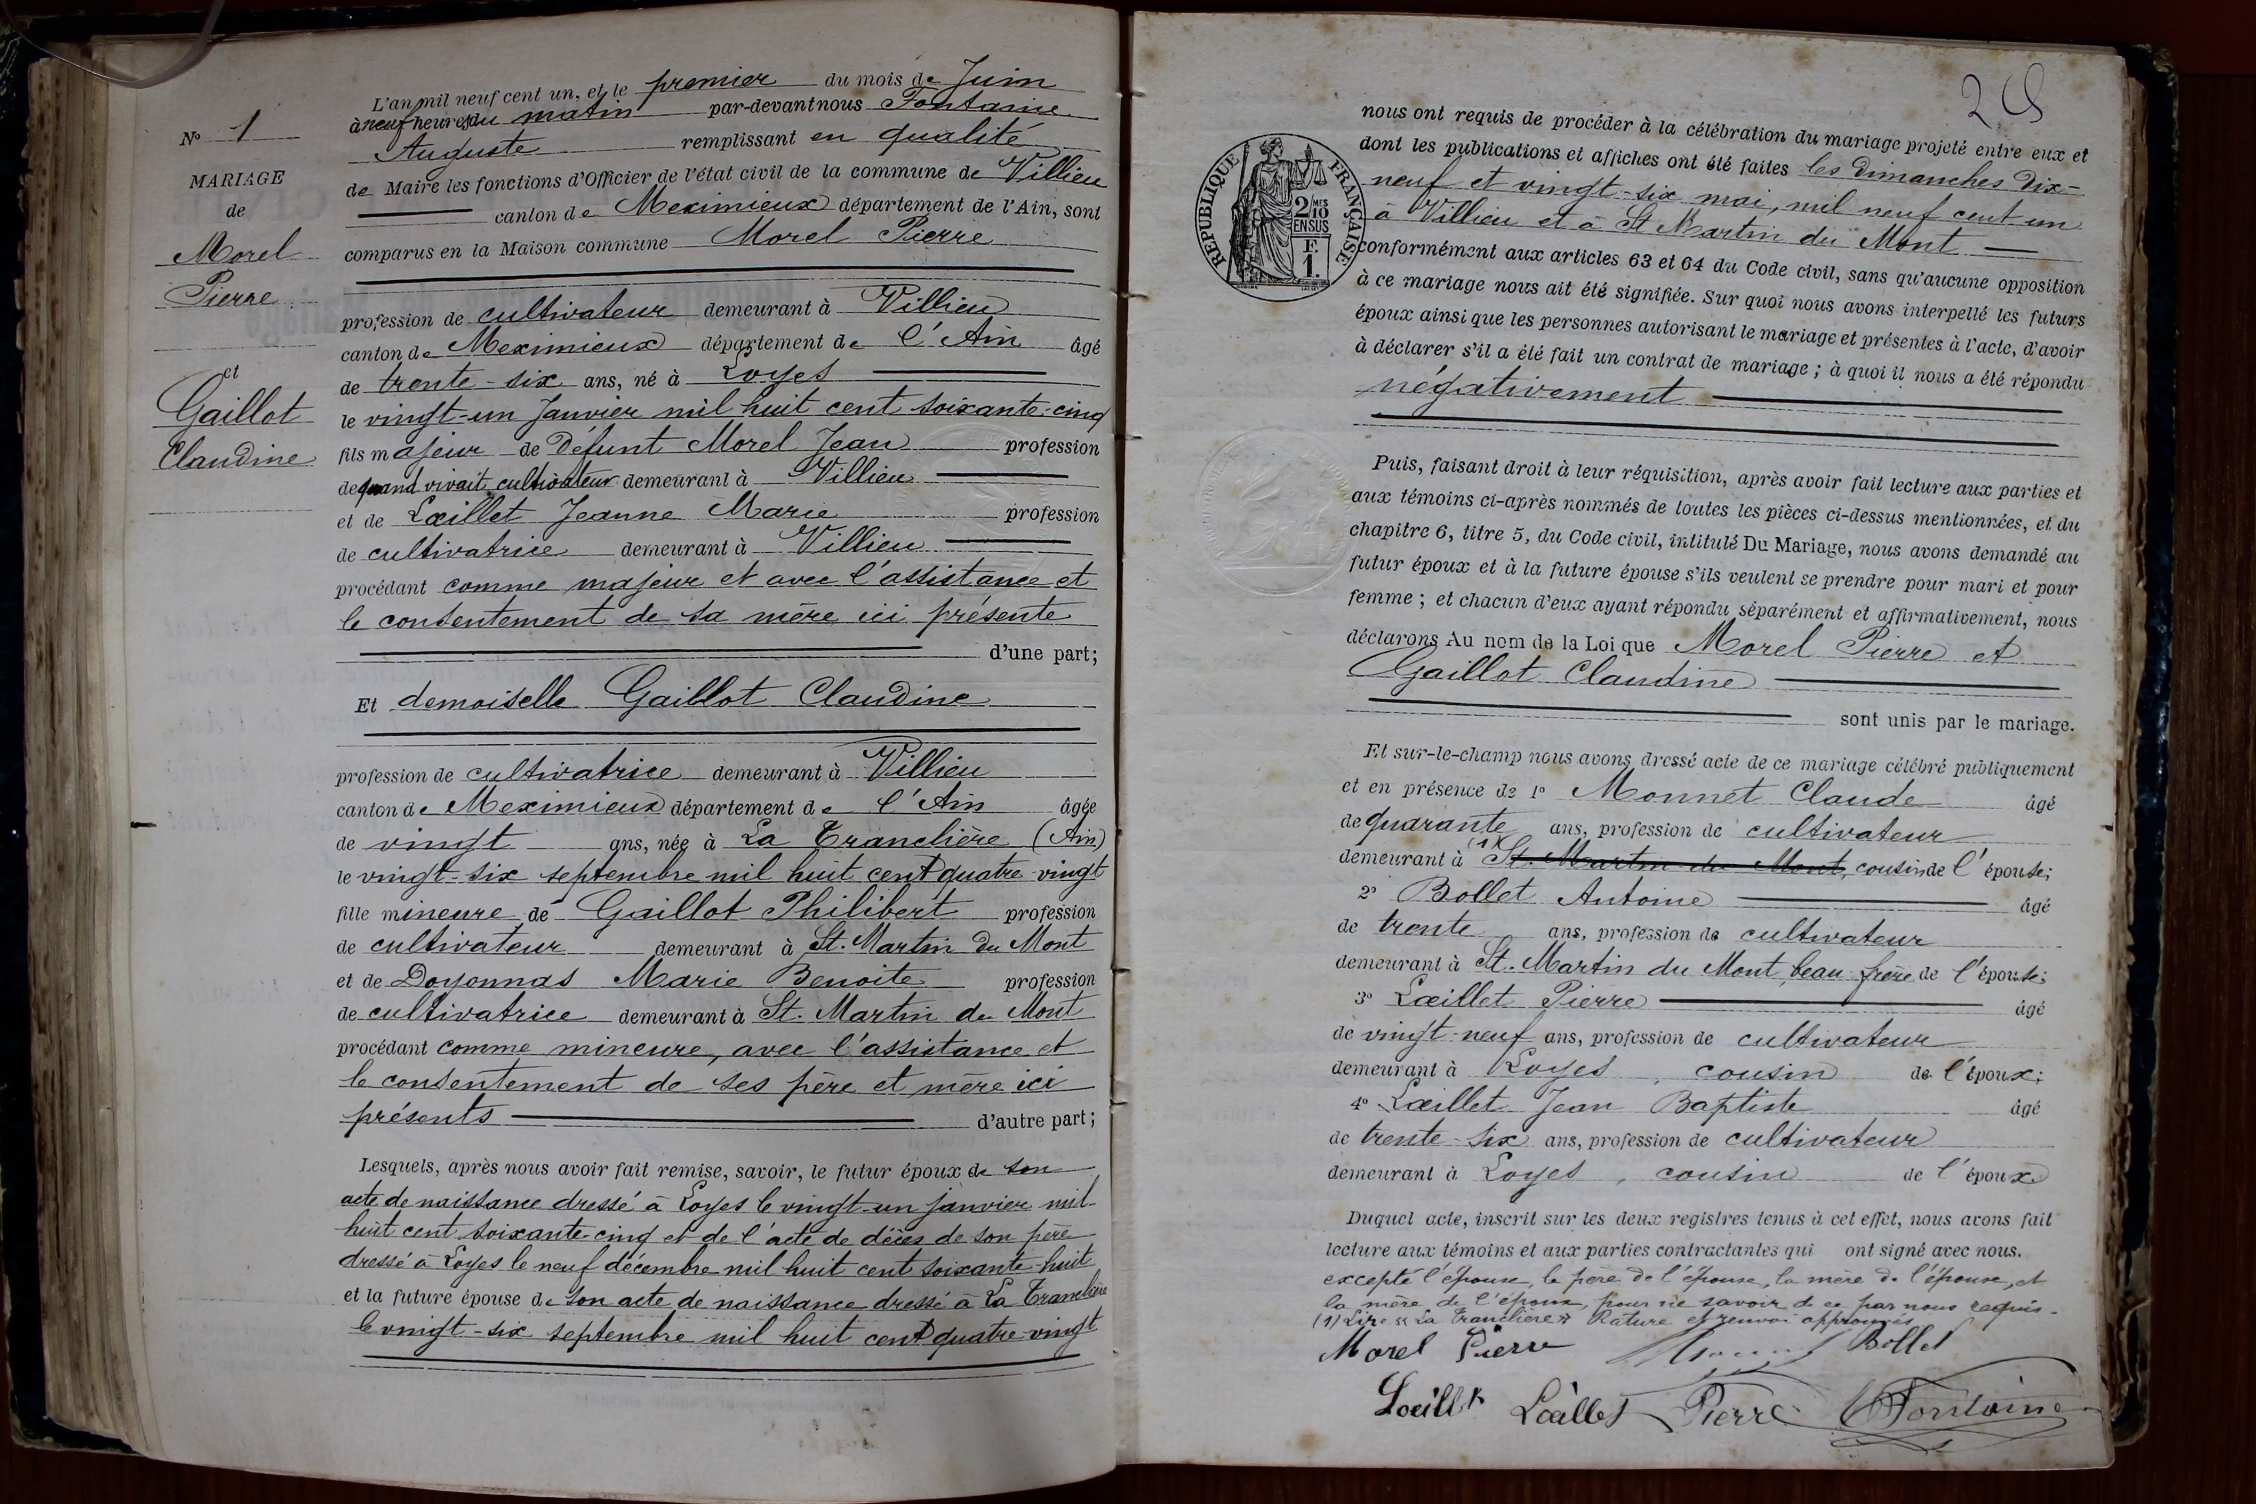 N° 1
MARIAGE
de
Morel
Pierre
et
Gaillot
Claudine
L'an mil neuf cent un, et le premier du mois de Juin
à neuf heures du matin par-devant nous Fontaine
Auguste remplissant en qualité
de Maire les fonctions d'Officier de l'état civil de la commune de Villieu
canton de Meximieux département de l'Ain, sont
comparus en la Maison commune Morel Pierre
profession de cultivateur demeurant à Villieu
canton de Meximieux département de l'Ain âgé
de trente-six ans, né à Loyes
le vingt-un Janvier mil huit cent soixante-cinq
fils majeur de Défunt Morel Jean profession
de quand vivait cultivateur demeurant à Villieu
et de Lœillet Jeanne Marie profession
de cultivatrice demeurant à Villieu
procédant comme majeur et avec l'assistance et
le consentement de sa mère ici présente
d'une part;
Et demoiselle Gaillot Claudine
profession de cultivatrice demeurant à Villieu
canton de Meximieux département de l'Ain âgée
de vingt ans, née à La Tranclière (Ain)
le vingt-six septembre mil huit cent quatre-vingt
fille mineure de Gaillot Philibert profession
de cultivateur demeurant à St. Martin du Mont
et de Doyonnas Marie Benoite profession
de cultivatrice demeurant à St. Martin du Mont
procédant comme mineure, avec l'assistance et
le consentement de ses père et mère ici
présents d'autre part;
Lesquels, après nous avoir fait remise, savoir, le futur époux de son
acte de naissance dressé à Loyes le vingt-un janvier mil
huit cent soixante-cinq et de l'acte de décès de son père
dressé à Loyes le neuf décembre mil huit cent soixante-huit
et la future épouse de son acte de naissance dressé à La Tranclière
le vingt-six septembre mil huit cent quatre-vingt
RÉPUBLIQUE FRANÇAISE
2/10 MES
EN SUS
F.
1.
nous ont requis de procéder à la célébration du mariage projeté entre eux et
dont les publications et affiches ont été faites les Dimanches Dix-
neuf et vingt-six mai, mil neuf cent un
à Villieu et à St Martin du Mont
conformément aux articles 63 et 64 du Code civil, sans qu'aucune opposition
à ce mariage nous ait été signifiée. Sur quoi nous avons interpellé les futurs
époux ainsi que les personnes autorisant le mariage et présentes à l'acte, d'avoir
à déclarer s'il a été fait un contrat de mariage ; à quoi il nous a été répondu
négativement
Puis, faisant droit à leur réquisition, après avoir fait lecture aux parties et
aux témoins ci-après nommés de toutes les pièces ci-dessus mentionnées, et du
chapitre 6, titre 5, du Code civil, intitulé Du Mariage, nous avons demandé au
futur époux et à la future épouse s'ils veulent se prendre pour mari et pour
femme ; et chacun d'eux ayant répondu séparément et affirmativement, nous
déclarons Au nom de la Loi que Morel Pierre et
Gaillot Claudine
sont unis par le mariage.
Et sur-le-champ nous avons dressé acte de ce mariage célébré publiquement
et en présence de 1° Monnet Claude âgé
de quarante ans, profession de cultivateur
demeurant à (1) St. Martin du Mont, cousin de l'épouse;
2° Bollet Antoine âgé
de trente ans, profession de cultivateur
demeurant à St. Martin du Mont, beau-frère de l'épouse;
3° Lœillet Pierre âgé
de vingt-neuf ans, profession de cultivateur
demeurant à Loyes, cousin de l'époux;
4° Lœillet Jean Baptiste âgé
de trente-six ans, profession de cultivateur
demeurant à Loyes, cousin de l'époux
Duquel acte, inscrit sur les deux registres tenus à cet effet, nous avons fait
lecture aux témoins et aux parties contractantes qui ont signé avec nous.
excepté l'épouse, le père de l'épouse, la mère de l'épouse, et
la mère de l'époux, pour ne savoir de ce par nous requis.
(1) Lire « La Tranclière » Rature et renvoi approuvés
Morel Pierre Bollet
Loeillet Lœillet Pierre Fontaine